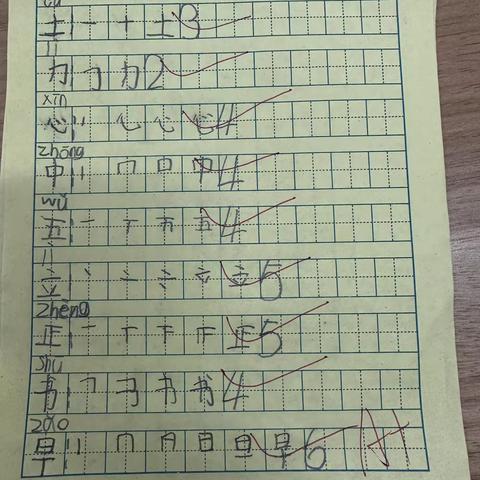 tǔ
土 一 十 土 3
lì
力 フ 力 2
xīn
心 心 心 心 4
zhōng
中 丨 冂 口 中 4
wǔ
五 一 丅 五 五 4
lì
立 丶 亠 立 5
zhèng
正 一 丅 下 正 5
shū
书 乛 书 书 4
zǎo
早 丨 冂 日 日 旦 早 6